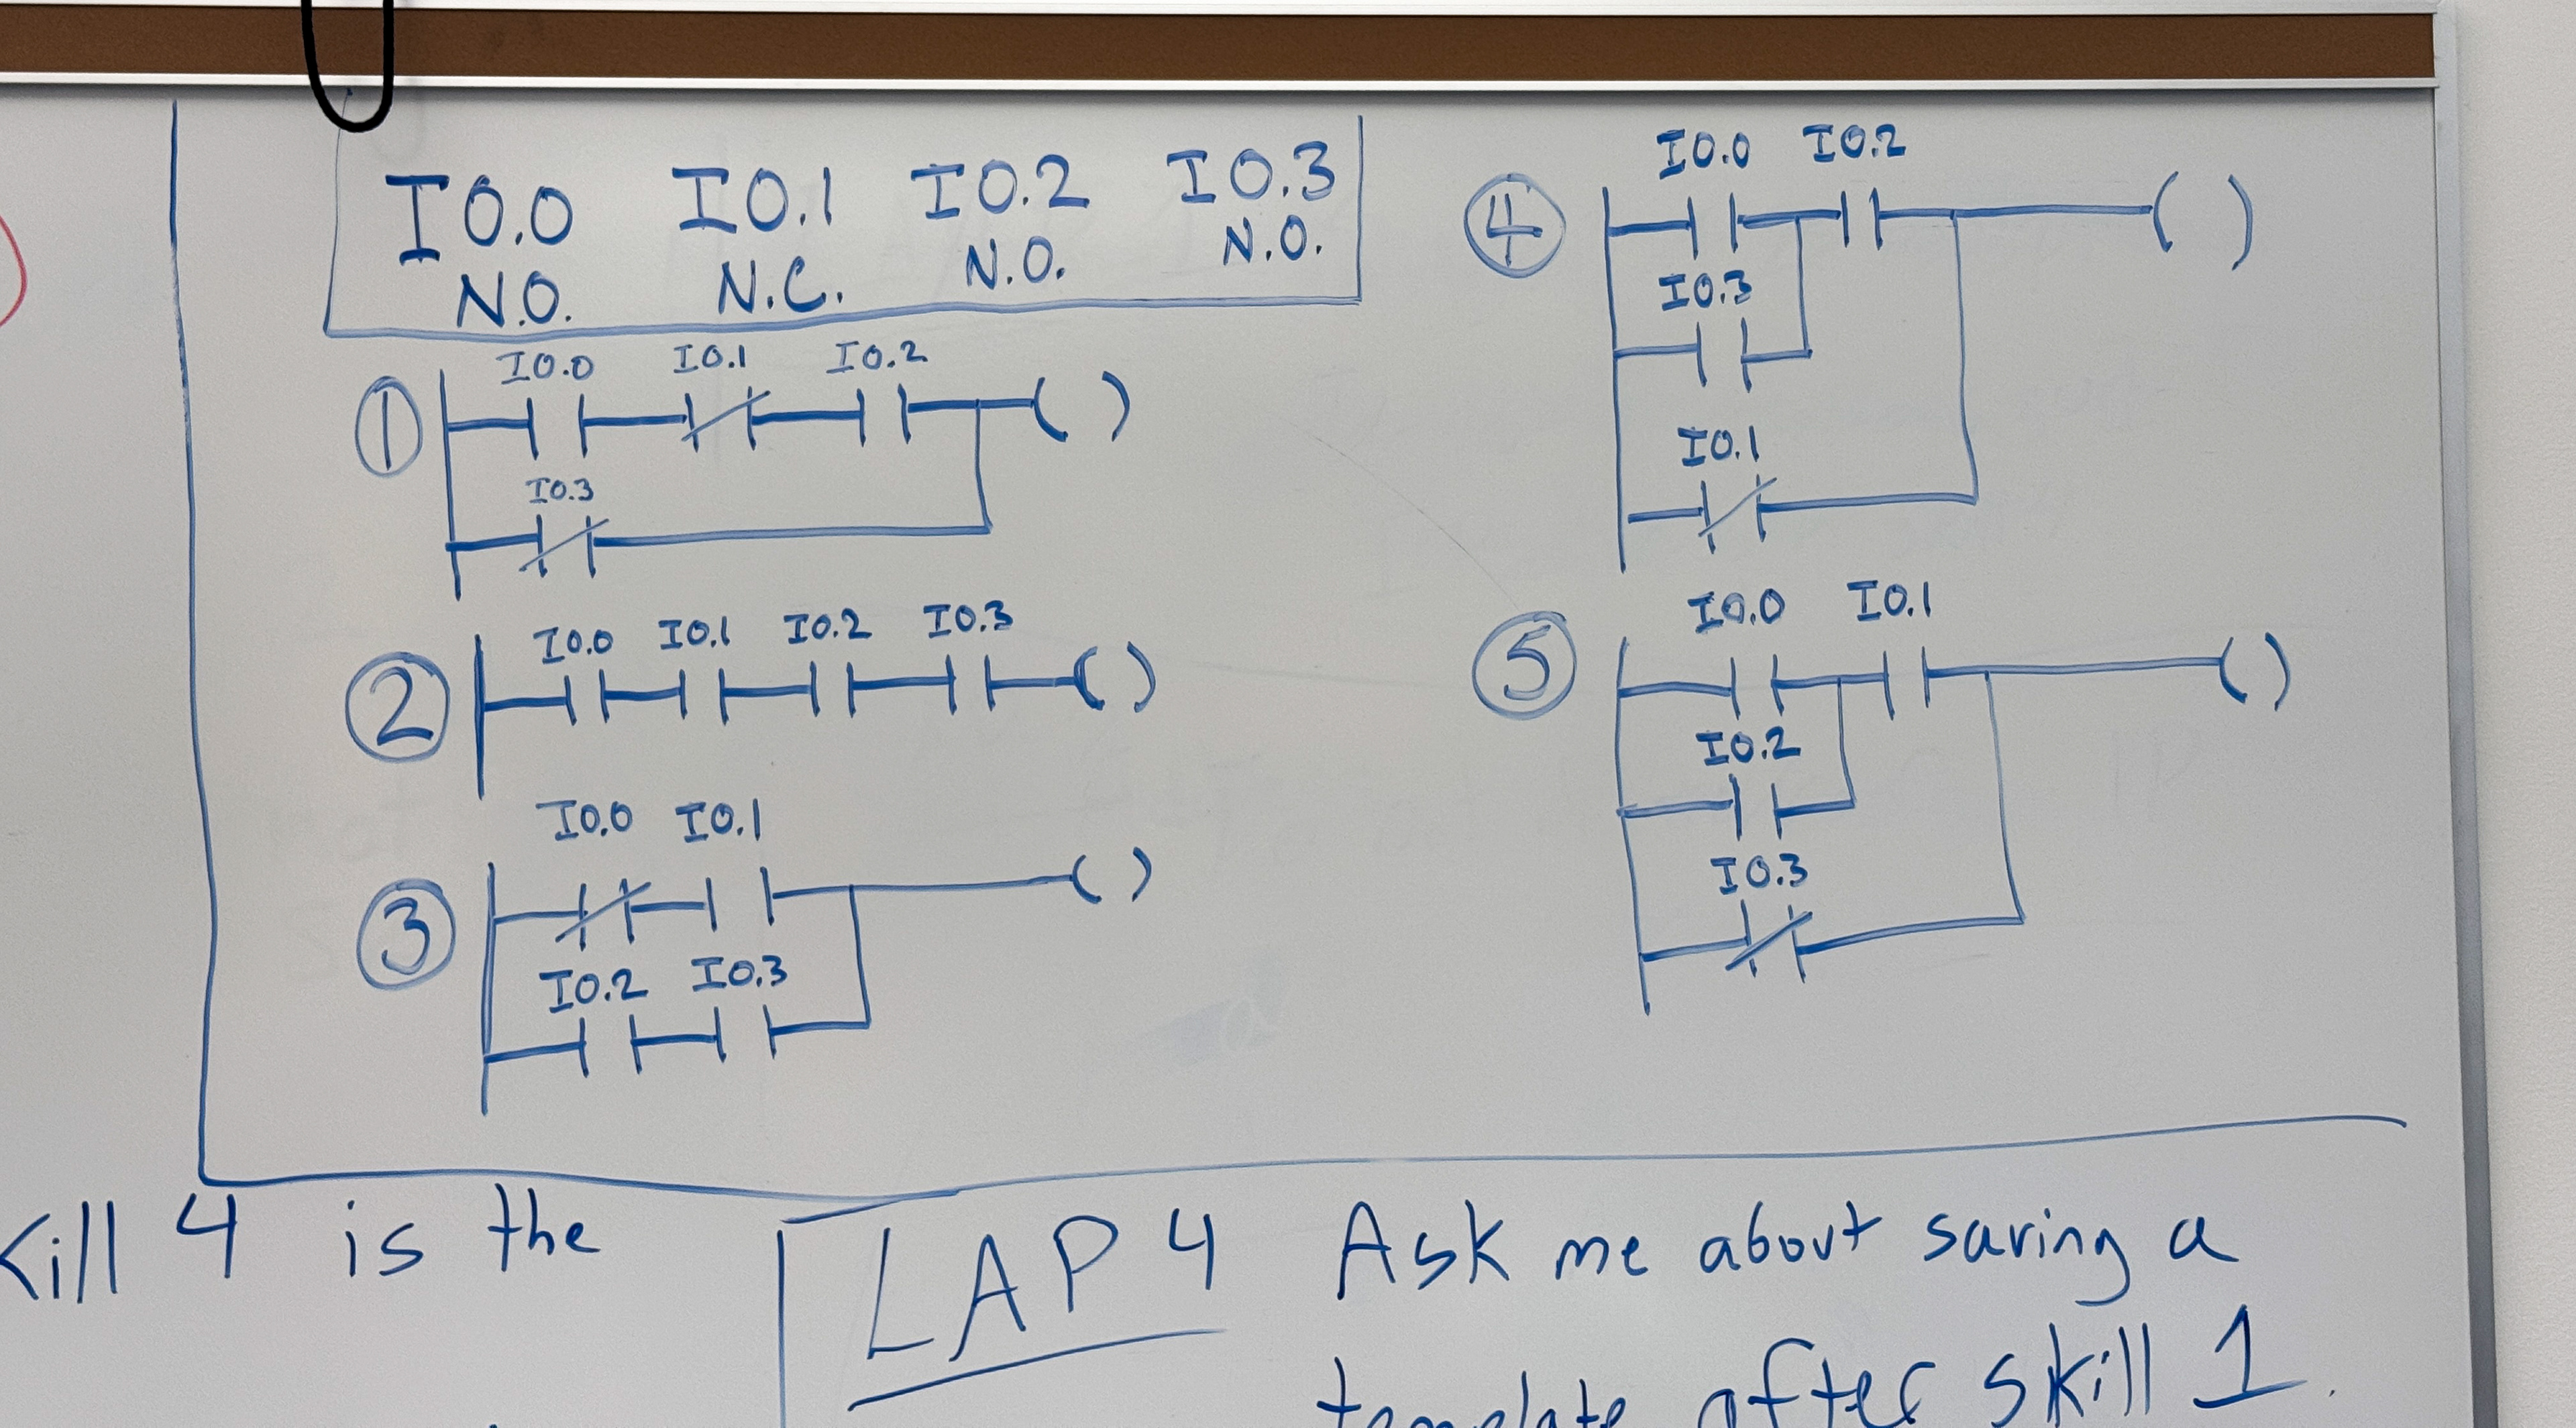 I0.0 I0.1 I0.2 I0.3
N.O. N.C. N.O. N.O.
1
I0.0 I0.1 I0.2
( )
I0.3
2
I0.0 I0.1 I0.2 I0.3
( )
3
I0.0 I0.1
( )
I0.2 I0.3
4
I0.0 I0.2
( )
I0.3
I0.1
5
I0.0 I0.1
( )
I0.2
I0.3
kill 4 is the
LAP 4 Ask me about saving a
template after skill 1.